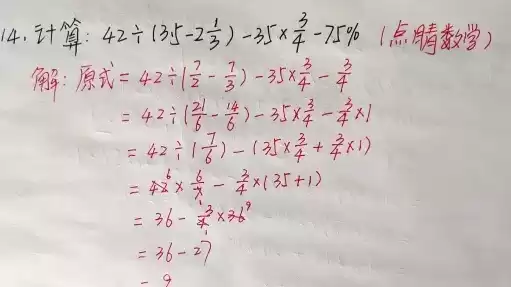 14. 计算: 42÷(3.5-2⅓)-35×¾-75% (点睛数学)
解: 原式=42÷(7/2-7/3)-35×3/4-3/4
=42÷(21/6-14/6)-35×3/4-3/4×1
=42÷(7/6)-(35×3/4+3/4×1)
=42 6×6/7-3/4×(35+1)
=36-3/4×36 9
=36-27
=9